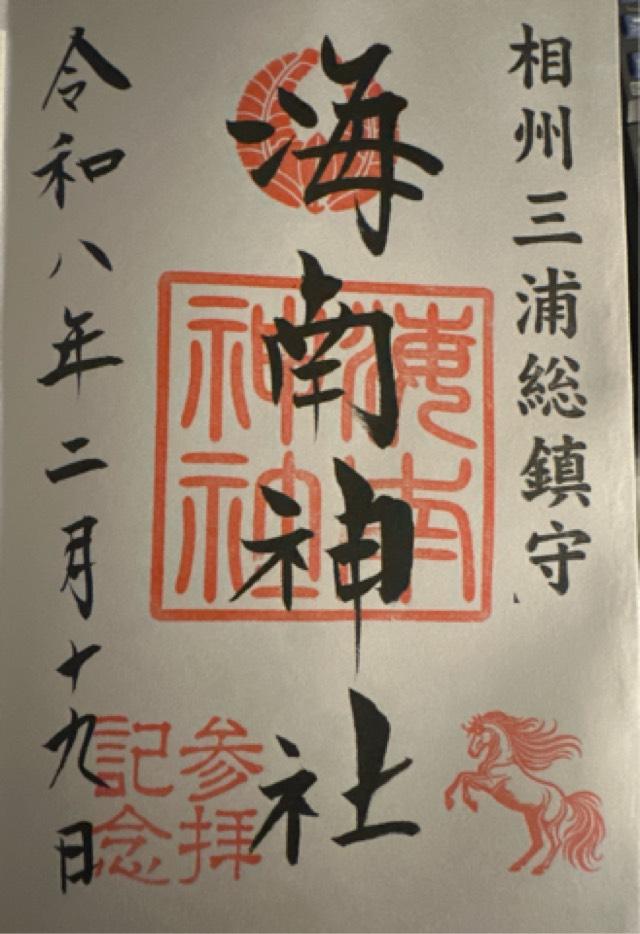 相州三浦総鎮守
海南神社
海南神社
参拝記念
令和八年二月十九日